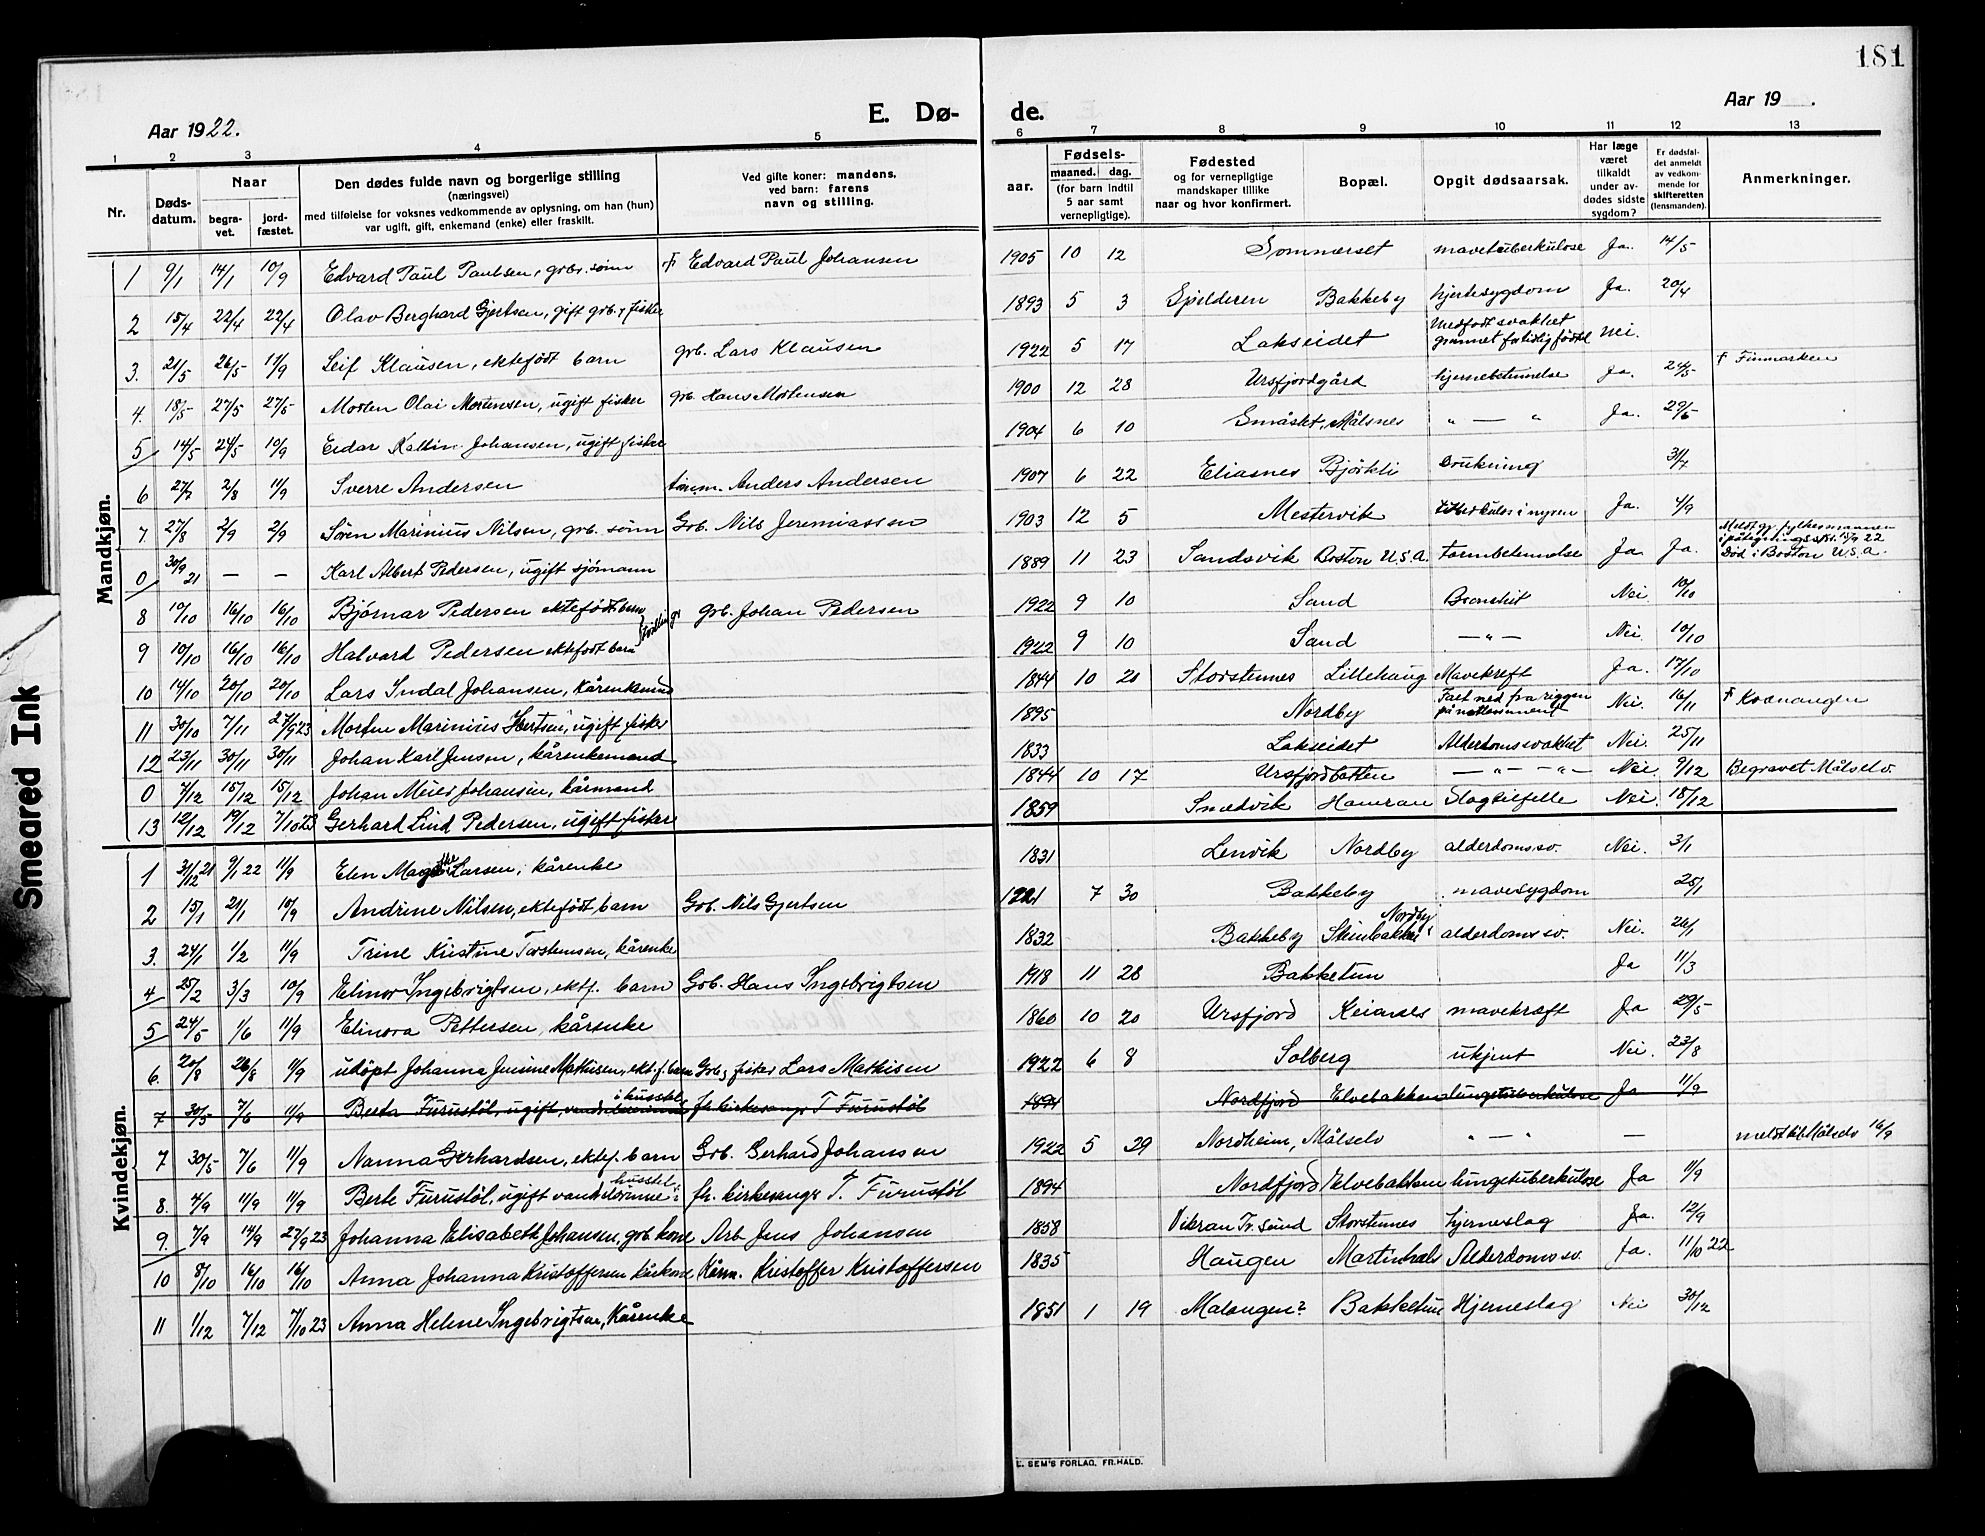 181
Aar 1922.
E. Dø-
de.
Aar 19 .
1 2 3 4 5 6 7 8 9 10 11 12 13
Nr.
Døds-
datum.
Naar
begra-
vet.
jord-
fæstet.
Den dødes fulde navn og borgerlige stilling
(næringsvei)
med tilføielse for voksnes vedkommende av oplysning, om han (hun)
var ugift, gift, enkemand (enke) eller fraskilt.
Ved gifte koner: mandens,
ved barn: farens
navn og stilling.
Fødsels-
aar.
maaned. dag.
(for barn indtil
5 aar samt
vernepligtige).
Fødested
og for vernepligtige
mandskaper tillike
naar og hvor konfirmert.
Bopæl.
Opgit dødsaarsak.
Har læge
været
tilkaldt
under av-
dødes sidste
sygdom?
Er dødsfal-
det anmeldt
av vedkom-
mende for
skifteretten
(lensmanden).
Anmerkninger.
Mandkjøn.
1 9/1 14/1 10/9 Edvard Paul Paulsen, grbr. sønn Edvard Paul Johansen 1905 10 12 Sommerset mavetuberkulose Ja. 14/5
2 15/4 22/4 22/4 Olav Berghard Gjertsen, gift grb. & fisker 1893 5 3 Spilderen Bakkeby hjertesygdom Ja. 20/4
3. 21/5 26/5 11/9 Leif Klausen, ektefødt barn grb. Lars Klausen 1922 5 17 Lakseidet Medfødt svakhet grunnet fortidig fødsel Nei.
4. 18/5 27/5 27/5 Morten Olai Mortensen, ugift fisker grb. Hans Mortensen 1900 12 28 Ursfjordgård hjernebetennelse Ja. 24/5 † Finmarken
5 14/5 24/5 10/9 Eidar Johansen, ugift fisker 1904 6 10 Småslet, Målsnes " — " Ja. 29/5
6 27/7 2/8 11/9 Sverre Andersen tømm. Anders Andersen 1907 6 22 Eliasnes Bjørkli Drukning 31/7
7 27/8 2/9 2/9 Søren Marinius Nilsen, grb. sønn Grb. Nils Jeremiassen 1903 12 5 Mestervik tuberkulose i nyren Ja. 4/9
0 30/9 21 — — Karl Albert Pedersen, ugift sjømann 1889 11 23 Sandsvik Boston U.S.A. Tarmbetennelse Ja Ja. Meldt gj. fylkesmannen i påtegningsskr. 15/9 22 Død i Boston U.S.A.
8 10/10 16/10 16/10 Bjørnar Pedersen ektefødt barn Tvillinger grb. Johan Pedersen 1922 9 10 Sand Bronkit Nei. 10/10
9 10/10 16/10 16/10 Halvard Pedersen ektefødt barn 1922 9 10 Sand — " — Nei. 10/10
10 14/10 20/10 20/10 Lars Indal Johansen, Kårenkemnd 1844 10 21 Storstennes Lillehaug Mavekreft Ja. 17/10
11 30/10 7/11 27/9 23 Morten Marinius Gjertsen, ugift fisker 1895 Nordby Falt ned fra riggen Nei. 16/11 † Kvænangen
12 23/11 30/11 30/11 Johan Karl Jensen, kårenkemand 1833 Lakseidet Alderdomssvakhet Nei. 25/11
0 7/12 15/12 15/12 Johan Meier Johansen, kårmand 1844 10 17 Ursfjordbotten — " — " — Nei. 9/12 Begravet Målselv.
13 12/12 19/12 7/10 23 Gerhard Lind Pedersen, ugift fisker 1859 Snedvik Hamran Slagtilfelle Nei. 18/12
Kvindekjøn.
1 31/12 21 9/1 22 11/9 Elen Larsen, kårenke 1831 Lenvik Nordby alderdomssv. Nei. 3/1
2 15/1 21/1 10/9 Andrine Nilsen, ektefødt barn Grb. Nils Gjertsen 1921 7 30 Bakkeby mavesygdom 25/1
3. 24/1 1/2 11/9 Trine Kristine Torstensen, kårenke 1832 Bakkeby Steinbakken Nordby alderdomssv. Nei. 26/1
4 25/2 3/3 10/9 Elinor Ingebrigtsen, ektf. barn Grb. Hans Ingebrigtsen 1918 11 28 Bakketun Ja 11/3
5 24/5 1/6 11/9 Elinora Pettersen, kårenke 1860 10 20 Ursfjord mavekræft Ja 29/5
6. 20/8 26/8 11/9 udøpt Johanna Jensine Mathisen, ekt.f. barn Grb. & fisker Lars Mathisen 1922 6 8 Solberg ukjent Nei. 23/8
7 30/5 7/6 11/9 Berta Furustøl, ugift, i husstel fh. kirkesanger T Furustøl 1894 Nordfjord Elvebakken lungetuberkulose Ja 11/9
7 30/5 7/6 11/9 Nanna Gerhardsen, ektef. barn Grb. Gerhard Johansen 1922 5 29 Nordheim, Målselv " — " — meldt til Målselv 16/9
8. 4/9 11/9 11/9 Berte Furustøl, ugift husstel fh. kirkesanger T. Furustøl 1894 Nordfjord Elvebakken lungetuberkulose Ja 11/9
9. 7/9 14/9 27/9 23 Johanna Elisabeth Johansen, grb. kone Arb Jens Johansen 1858 Vikran Tr.sund Storstennes hjerneslag Ja. 12/9
10 8/10 16/10 16/10 Anna Johanna Kristoffersen kårkone Kårm. Kristoffer Kristoffersen 1835 Haugen Martinhals Alderdomssv. Ja. 11/10 22
11 1/12 7/12 7/10 23 Anna Helene Ingebrigtsen, Kårenke 1851 1 19 Malangen? Bakketun Hjerneslag Nei 30/12
E. SEM'S FORLAG, FR.HALD.
Smeared Ink